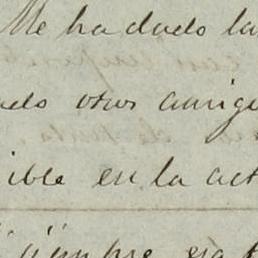 Me ha dado la
ado otros amig
ible en la act
siempre esa